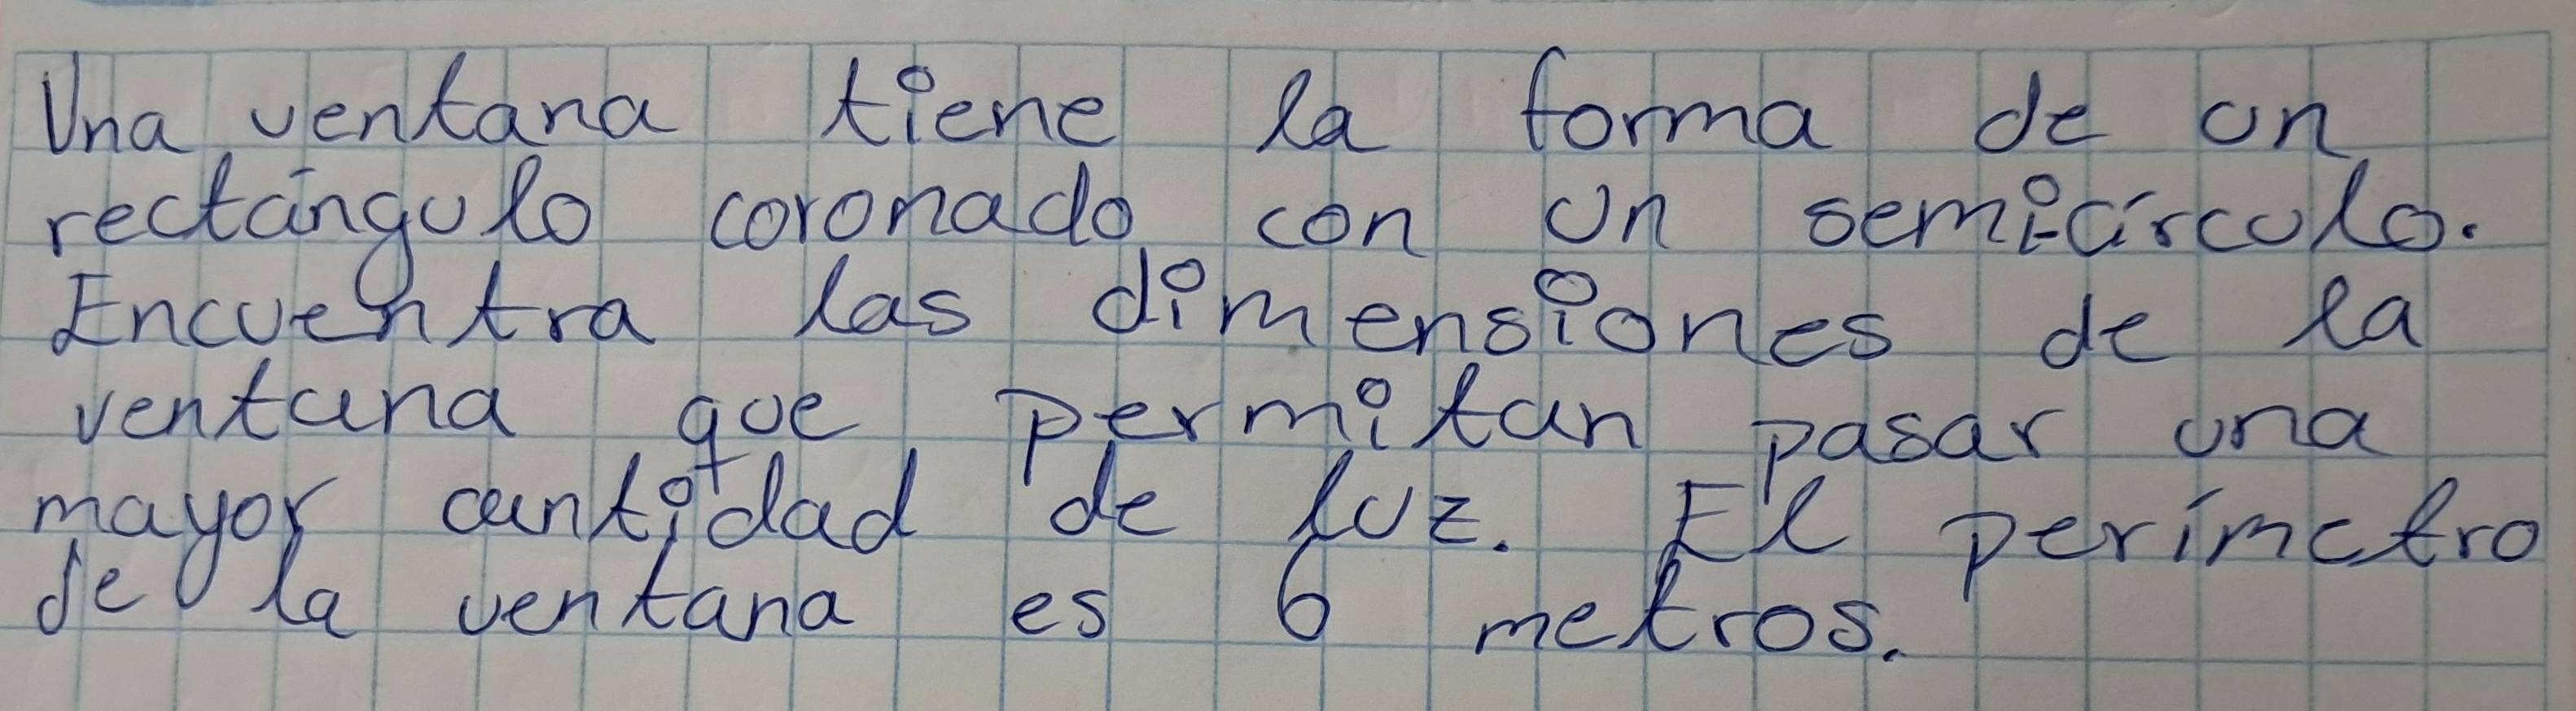 Una ventana tiene la forma de un
rectángulo coronado con un semicírculo.
Encuentra las dimensiones de la
ventana que permitan pasar una
mayor cantidad de luz. El perímetro
de la ventana es 6 metros.